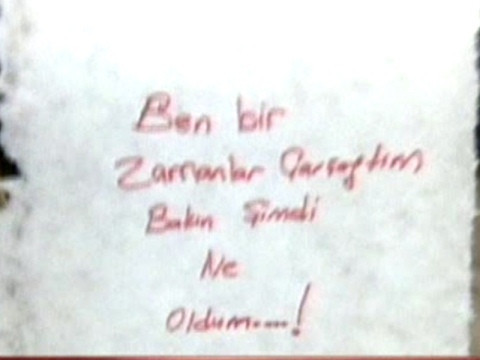 Ben bir
Zamanlar Çarşaftım
Bakın Şimdi
Ne
Oldum....!